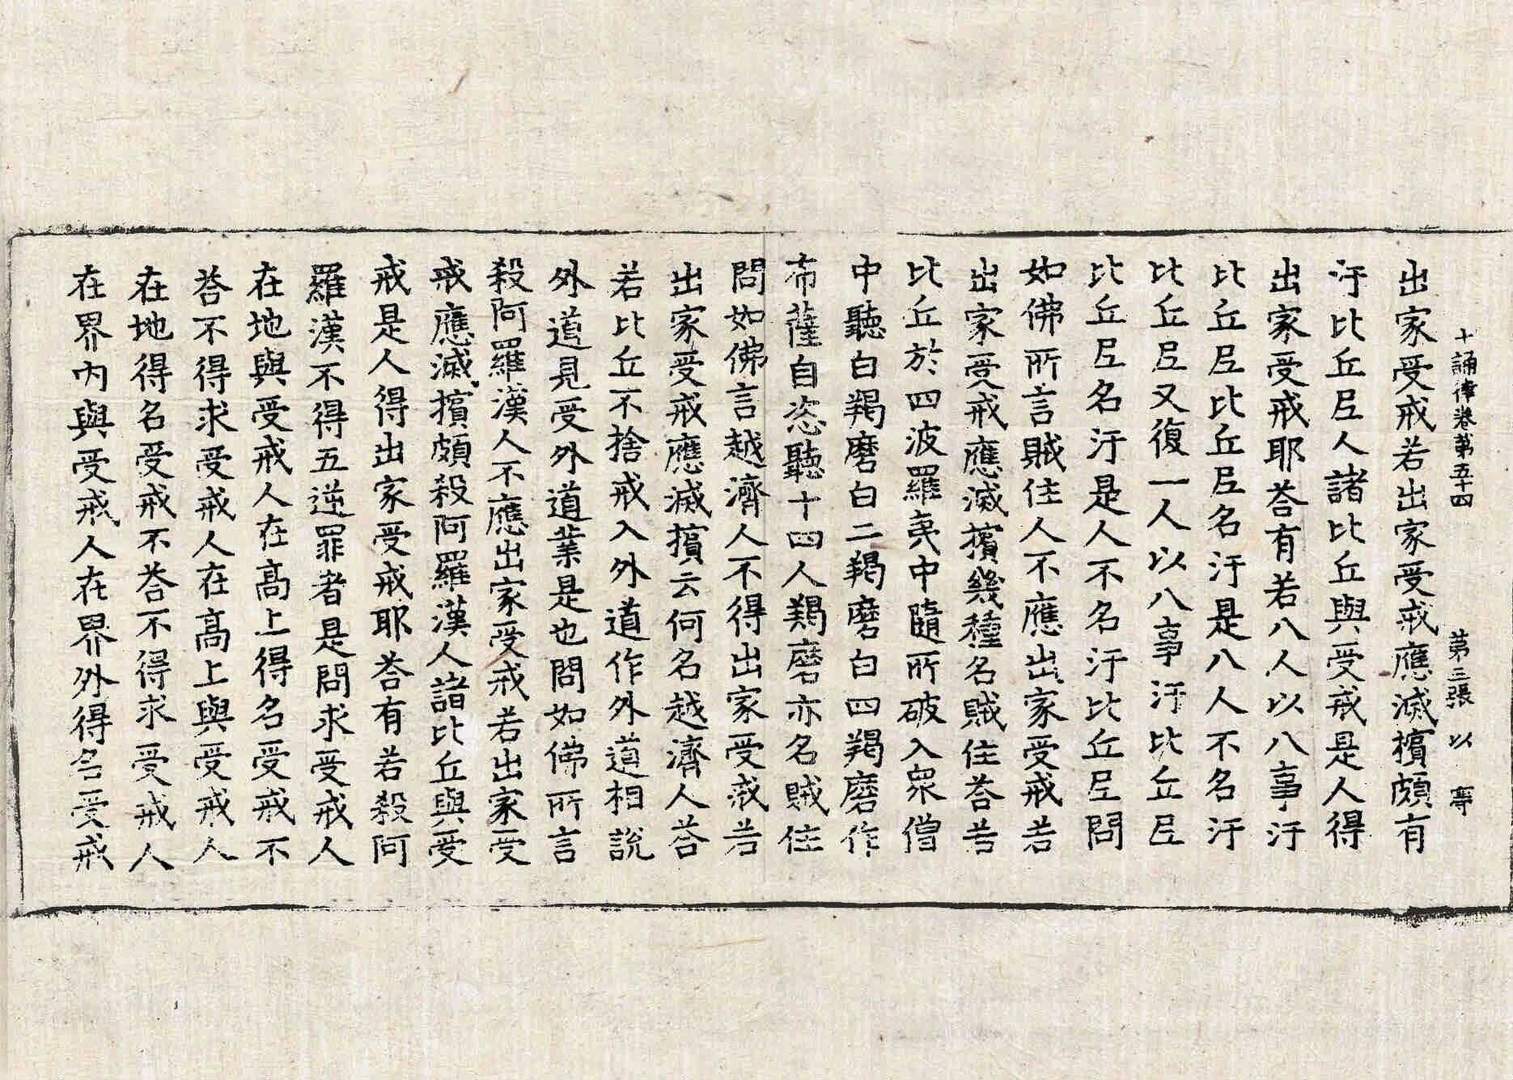 十誦律卷第五十四 第三張 以
出家受戒若出家受戒應滅擯頗有
汙比丘尼人諸比丘與受戒是人得
出家受戒耶荅有若八人以八事汙
比丘尼比丘尼名汙是八人不名汙
比丘尼又復一人以八事汙比丘尼
比丘尼名汙是人不名汙比丘尼問
如佛所言賊住人不應出家受戒若
出家受戒應滅擯幾種名賊住荅若
比丘於四波羅夷中隨所破入衆僧
中聽白羯磨白二羯磨白四羯磨作
布薩自恣聽十四人羯磨亦名賊住
問如佛言越濟人不得出家受戒若
出家受戒應滅擯云何名越濟人荅
若比丘不捨戒入外道作外道相說
外道見受外道業是也問如佛所言
殺阿羅漢人不應出家受戒若出家受
戒應滅擯頗殺阿羅漢人諸比丘與受
戒是人得出家受戒耶荅有若殺阿
羅漢不得五逆罪者是問求受戒人
在地與受戒人在高上得名受戒不
荅不得求受戒人在高上與受戒人
在地得名受戒不荅不得求受戒人
在界內與受戒人在界外得名受戒